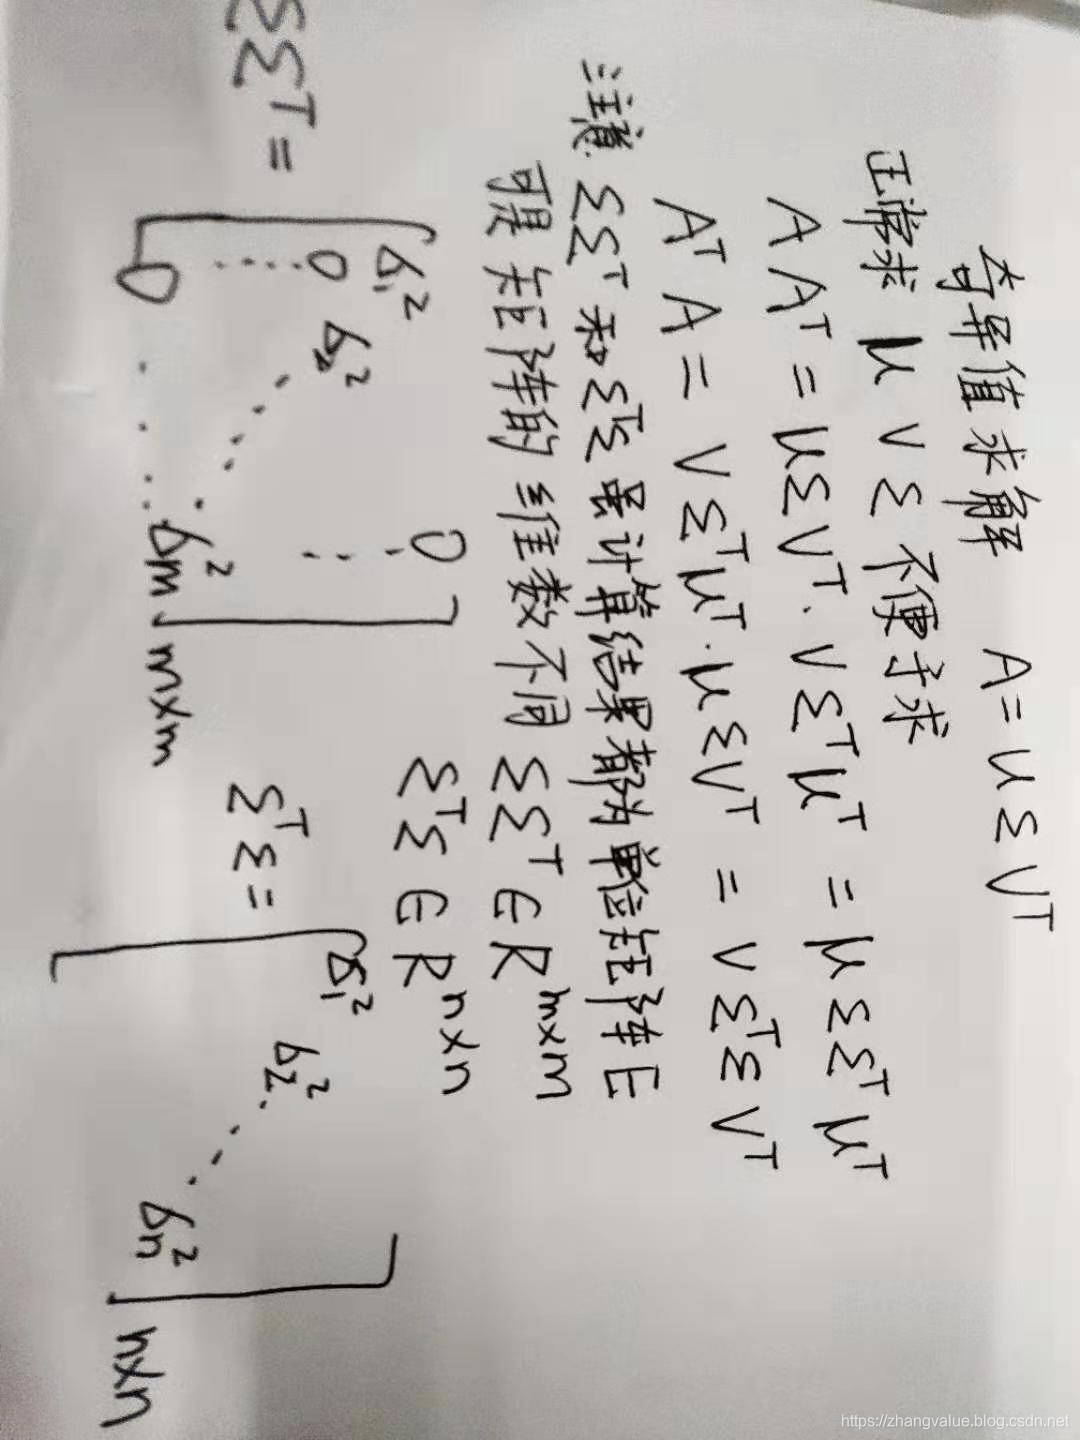 奇异值求解 A=UΣVᵀ
正常求 U V Σ 不便于求
A Aᵀ = UΣVᵀ·VΣᵀUᵀ = UΣΣᵀUᵀ
AᵀA = VΣᵀUᵀ·UΣVᵀ = VΣᵀΣVᵀ
注意 ΣΣᵀ 和 ΣᵀΣ 虽计算结果都为单位矩阵E
可是 矩阵的 维数不同 ΣΣᵀ∈R^{m×m}
ΣᵀΣ∈R^{n×n}
ΣΣᵀ = [ σ₁² 0
0 σ₂²
⋮ ⋱ ⋮
0 ... σₘ² ] m×m
ΣᵀΣ = [ σ₁²
σ₂²
⋱
σₙ² ] n×n
https://zhangvalue.blog.csdn.net